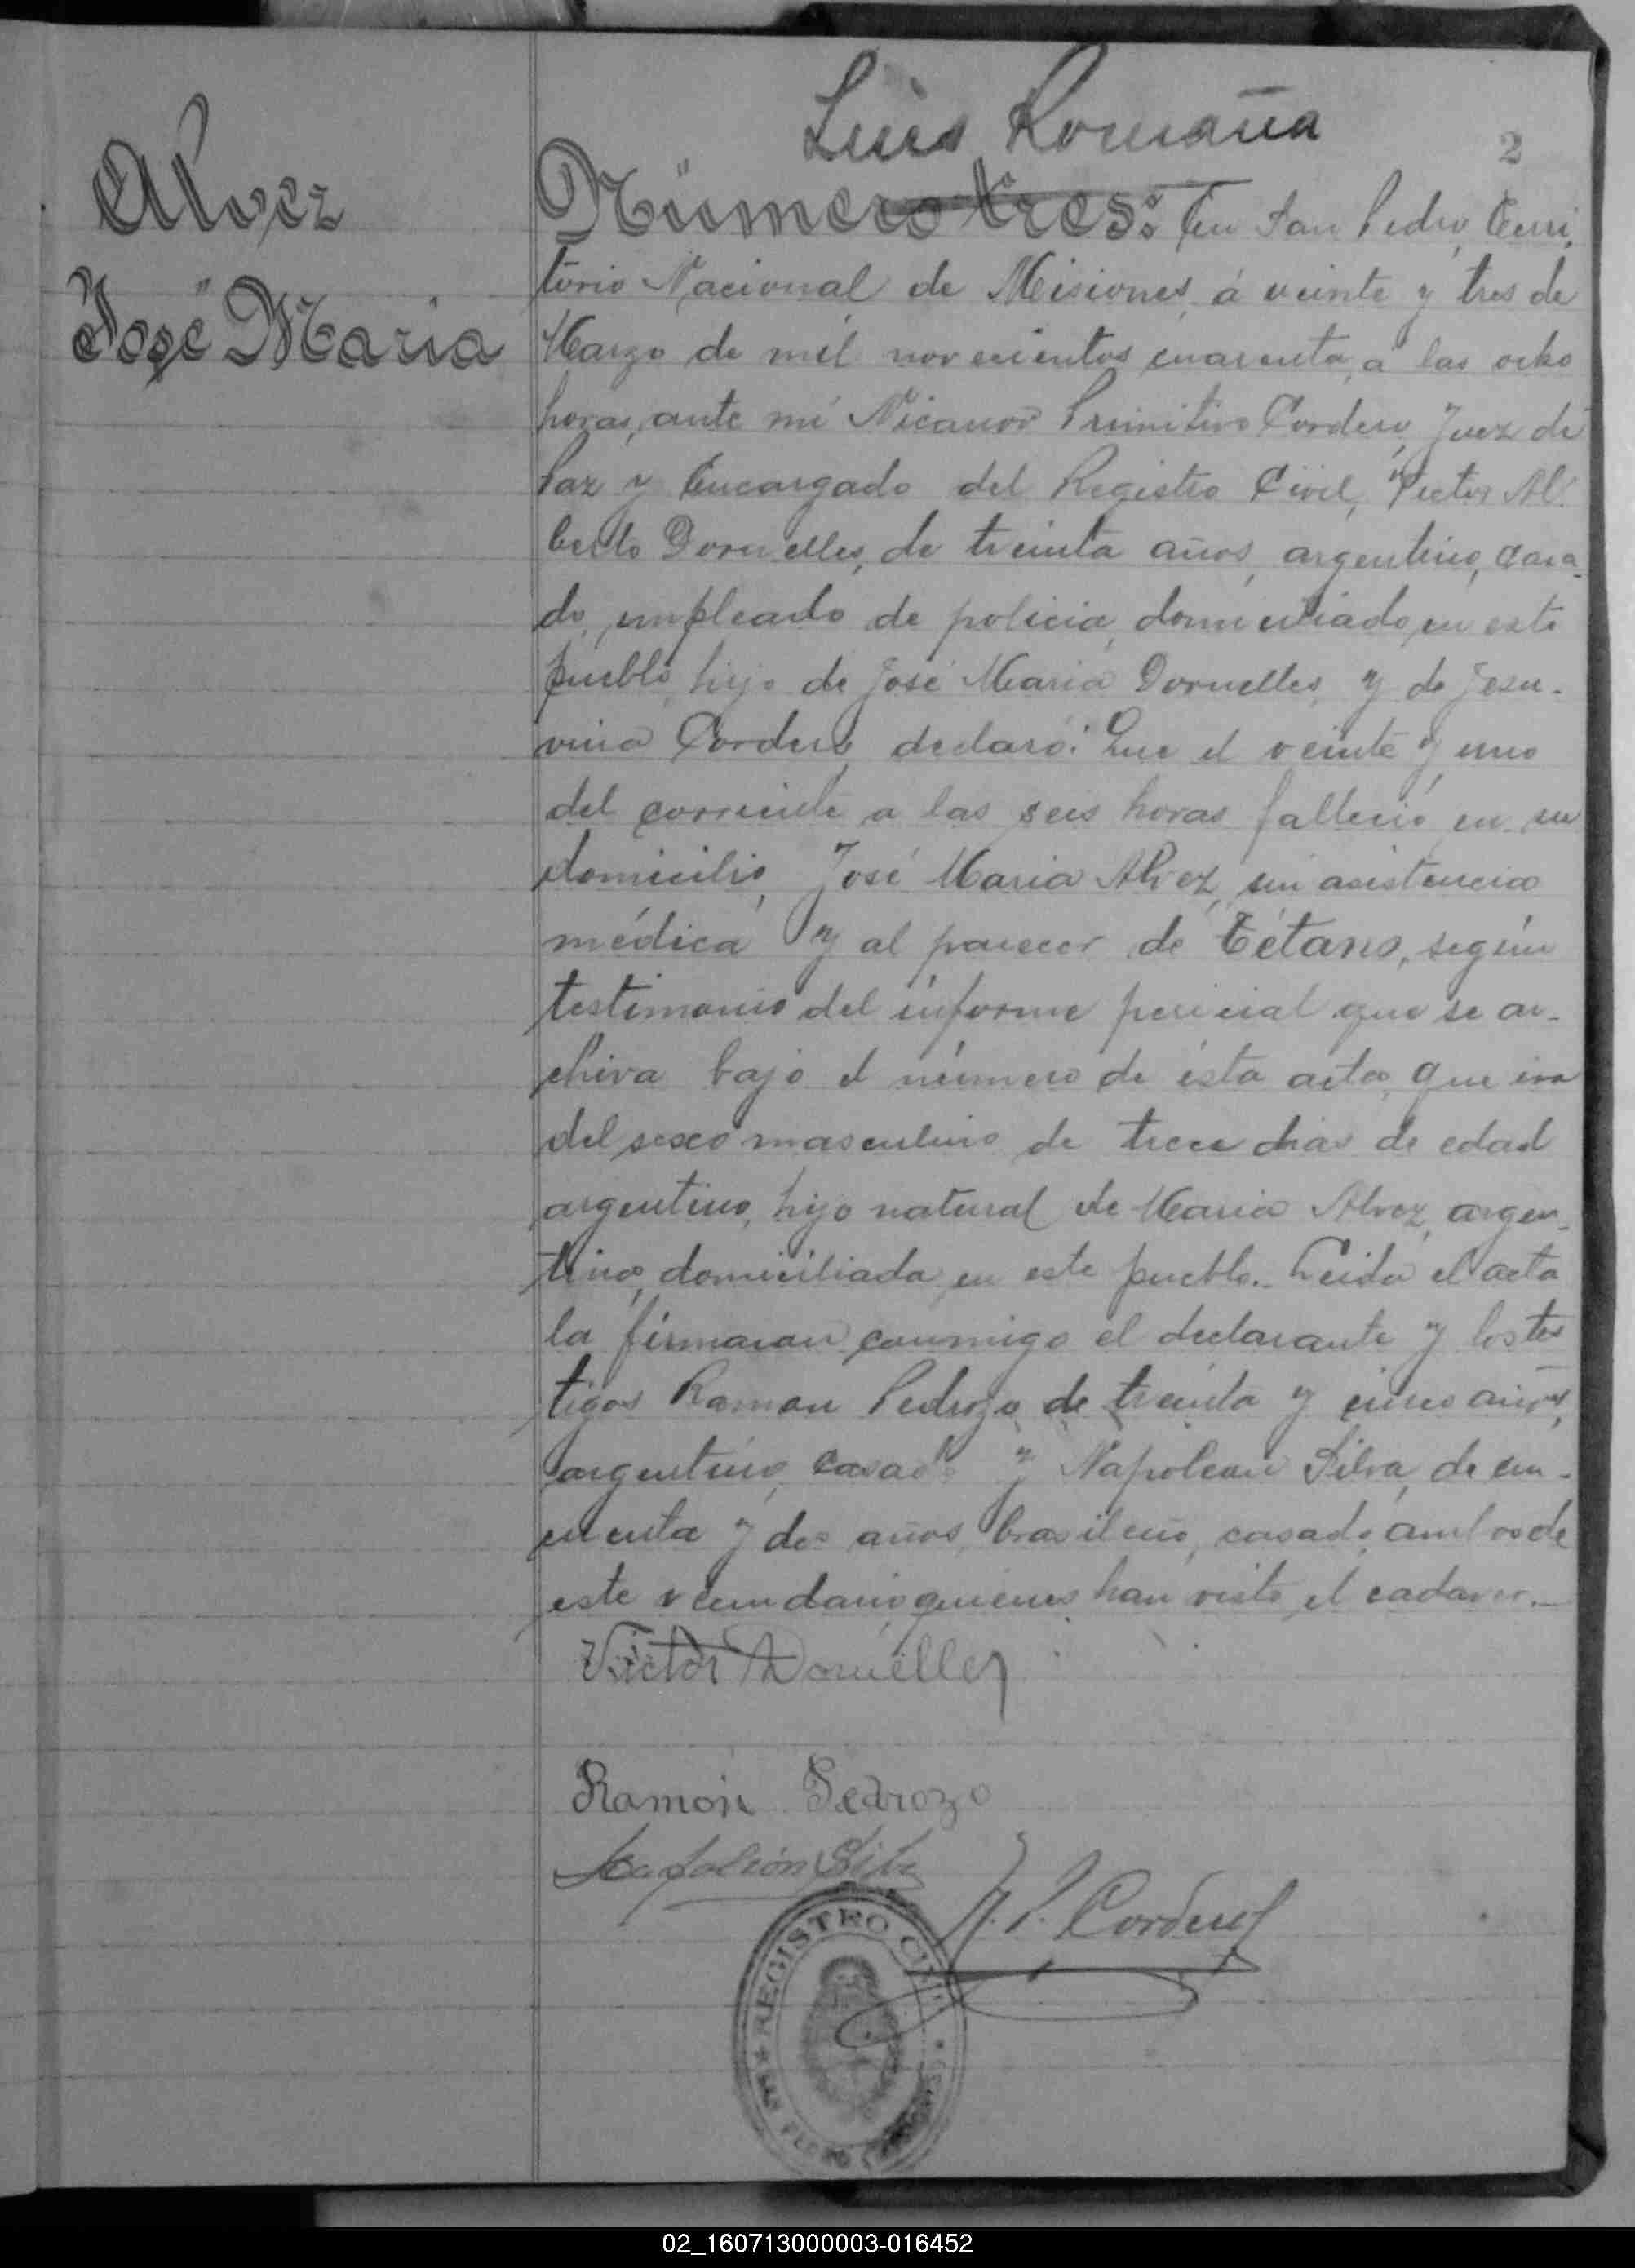 Luis Romaña
2
Alvez
José Maria
Número tres: En San Pedro, Terri,
torio Nacional de Misiones, á veinte y tres de
Marzo de mil novecientos cuarenta, a las ocho
horas, ante mi Nicanor Primitivo Cordero, Juez de
Paz y Encargado del Registro Civil, Victor Al
berto Dornelles, de treinta años, argentino, casa-
do, empleado de policia, domiciliado en este
pueblo, hijo de José Maria Dornelles, y de Jesu-
vina Cordero, declaró: Que el veinte y uno
del corriente a las seis horas falleció en su
domicilio, José Maria Alvez, sin asistencia
médica y al parecer de Tétano, según
testimonio del informe pericial que se ar-
chiva bajo el número de ésta acta, que era
del sexo masculino de trece dias de edad
argentino, hijo natural de Maria Alvez, argen-
tina, domiciliada en este pueblo.- Leida el acta
la firmaran conmigo el declarante y los tes
tigos Ramon Pedrozo de treinta y cinco años,
argentino, casado y Napoleon Silva, de cin-
cuenta y dos años, brasileño, casado, ambos de
este vecindario quienes han visto el cadaver.-
Victor Dornelles
Ramón Pedrozo
Napoleón Silva
N. P. Cordero
REGISTRO CIVIL
SAN PEDRO
02_160713000003-016452